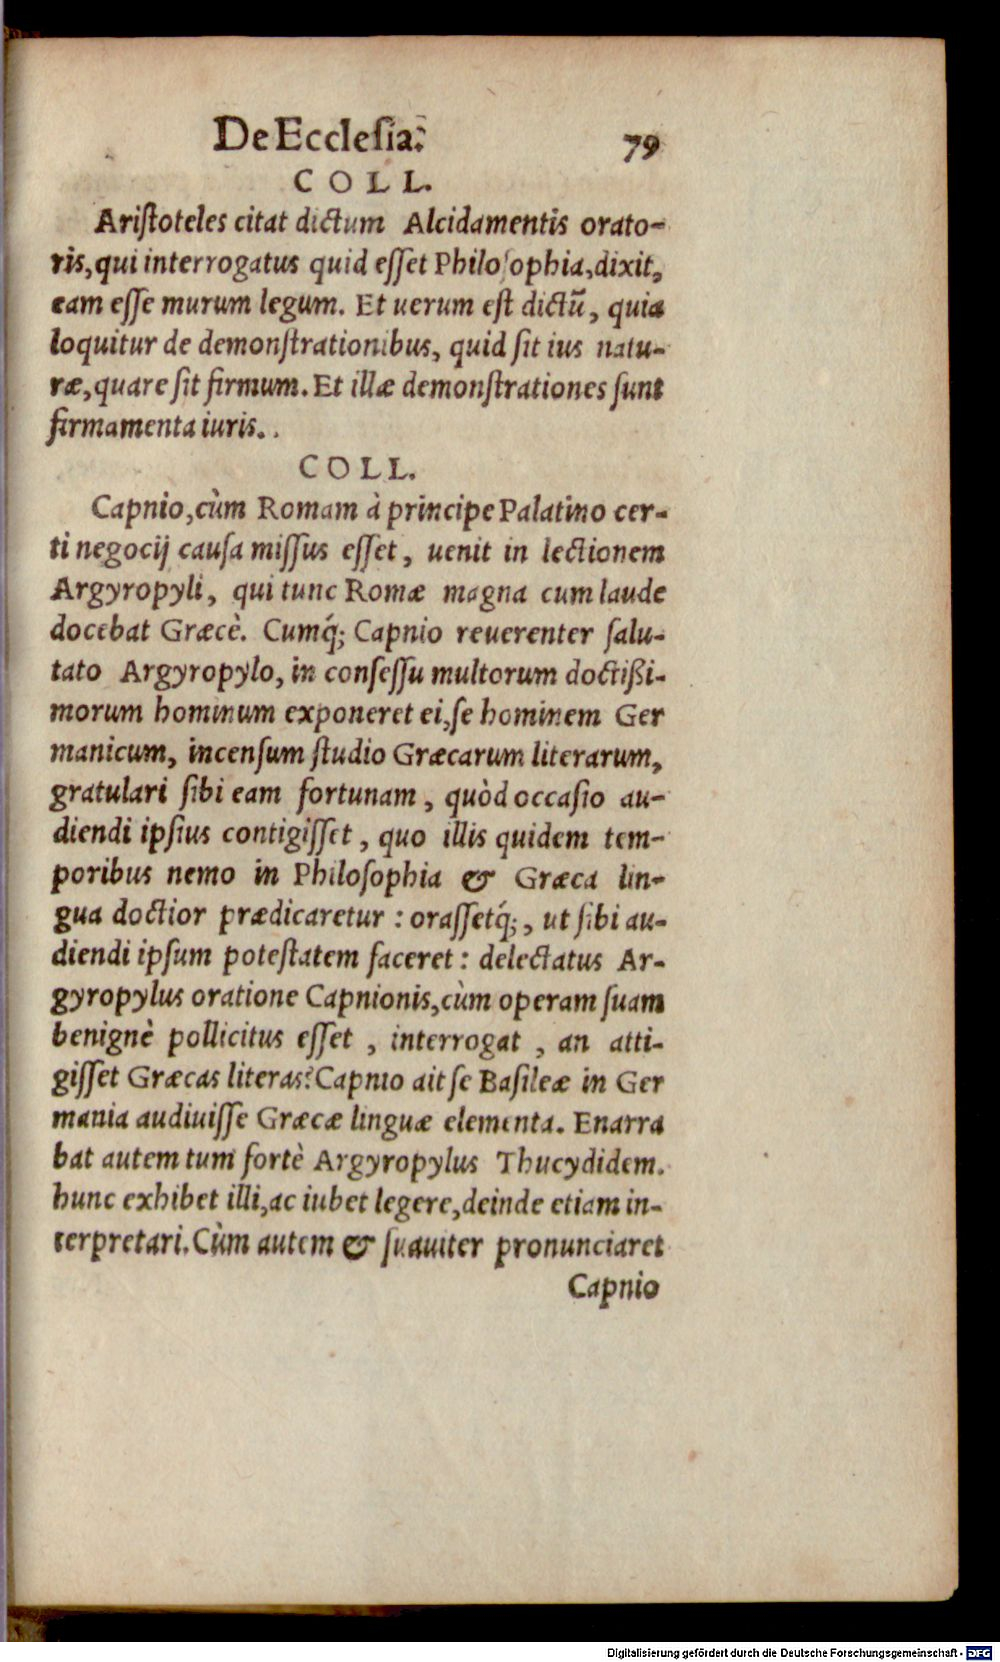 De Ecclesia. 79
COLL.
Ariſtoteles citat dictum Alcidamentis orato-
ris, qui interrogatus quid eſſet Philoſophia, dixit,
eam eſſe murum legum. Et uerum eſt dictũ, quia
loquitur de demonſtrationibus, quid ſit ius natu-
ræ, quare ſit firmum. Et illæ demonſtrationes ſunt
firmamenta iuris.
COLL.
Capnio, cùm Romam à principe Palatino cer-
ti negocij cauſa miſſus eſſet, uenit in lectionem
Argyropyli, qui tunc Romæ magna cum laude
docebat Græcè. Cumq́; Capnio reuerenter ſalu-
tato Argyropylo, in conſeſſu multorum doctißi-
morum hominum exponeret ei, ſe hominem Ger
manicum, incenſum ſtudio Græcarum literarum,
gratulari ſibi eam fortunam, quòd occaſio au-
diendi ipſius contigiſſet, quo illis quidem tem-
poribus nemo in Philoſophia & Græca lin-
gua doctior prædicaretur: oraſſetq́;, ut ſibi au-
diendi ipſum poteſtatem faceret: delectatus Ar-
gyropylus oratione Capnionis, cùm operam ſuam
benignè pollicitus eſſet, interrogat, an atti-
giſſet Græcas literas? Capnio ait ſe Baſileæ in Ger
mania audiuiſſe Græcæ linguæ elementa. Enarra
bat autem tum fortè Argyropylus Thucydidem.
hunc exhibet illi, ac iubet legere, deinde etiam in-
terpretari. Cùm autem & ſuauiter pronunciaret
Capnio
Digitalisierung gefördert durch die Deutsche Forschungsgemeinschaft - DFG